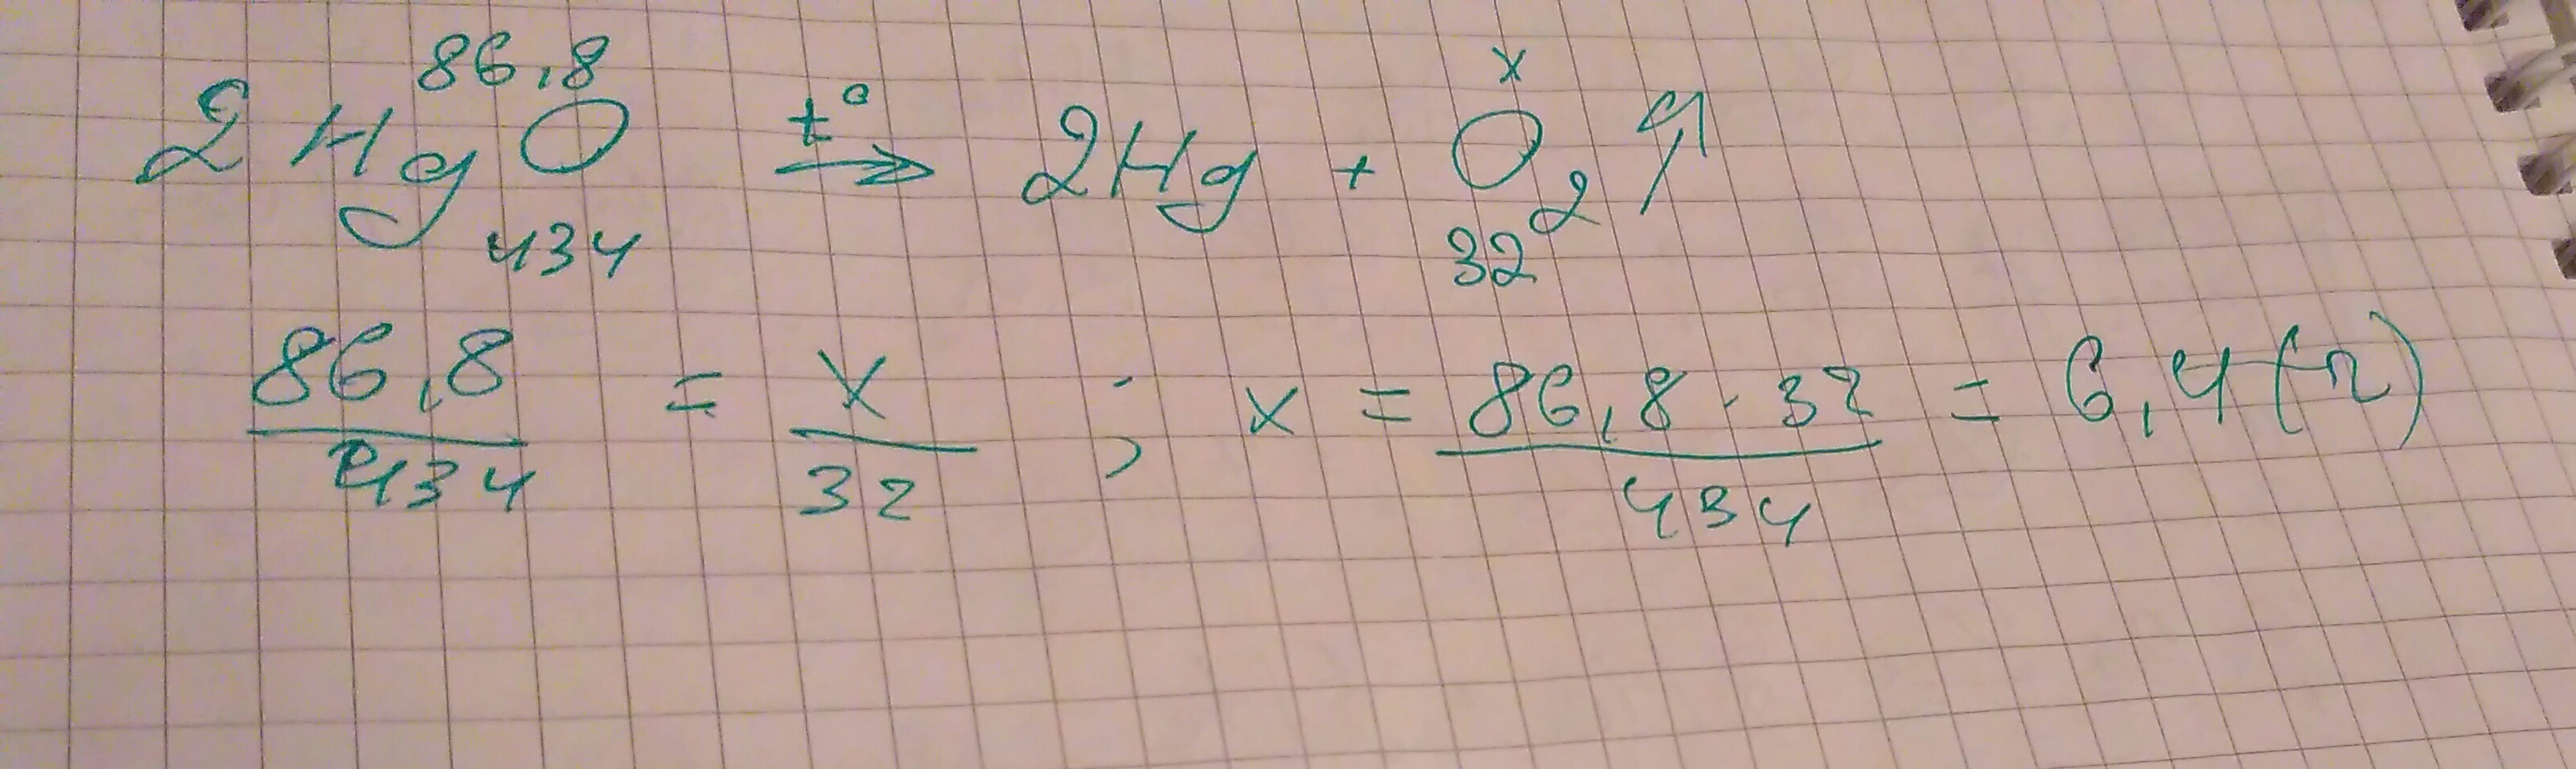 86,8 x
2HgO t° → 2Hg + O₂ ↑
434 32
86,8/434 = x/32 ; x = 86,8 · 32/434 = 6,4 (г)